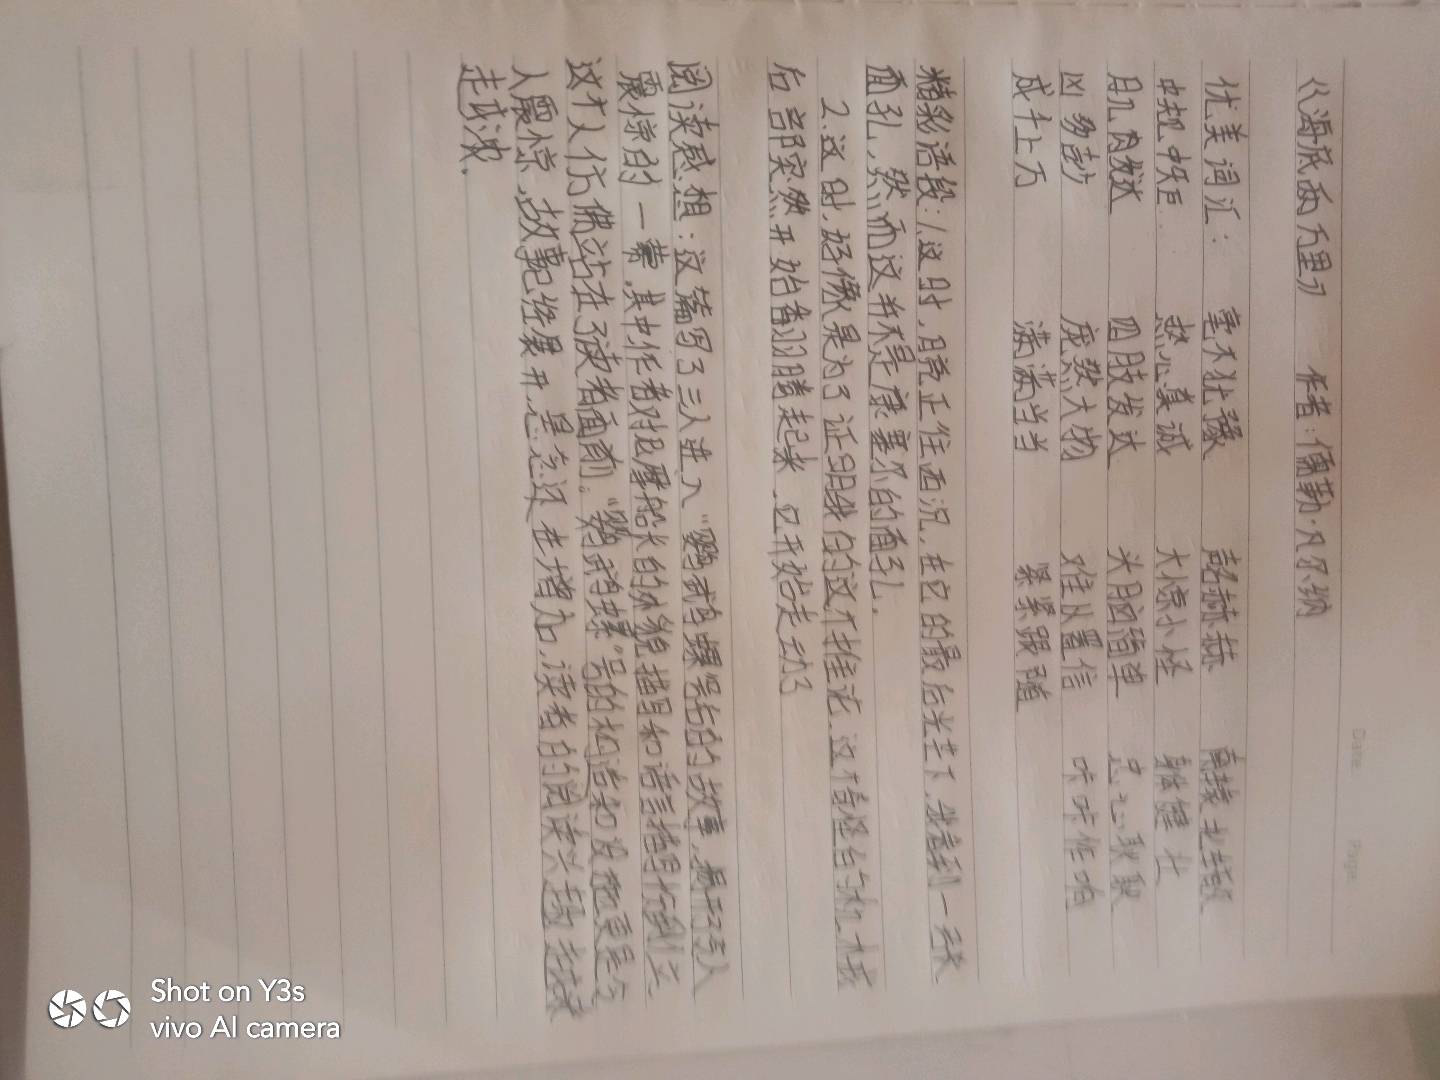 《海底两万里》 作者:儒勒·凡尔纳
优美词汇: 毫不犹豫 赫赫 南辕北辙
中规中矩 热心真诚 大惊小怪 躯健壮
肌肉发达 四肢发达 头脑简单 忠心耿耿
凶多 庞然大物 难以置信 咔咔作响
成千上万 满满当当 紧紧跟随
精彩语段:1.这时,月亮正往西沉,在它的最后光芒下,我看到一张
面孔,然而这并不是康塞尔的面孔。
2.这时,好像是为了证明我的这个推论,这个奇怪的机械
后部突然开始翻腾起来,它开始走动了
阅读感想:这篇写了三人进入"鹦鹉螺号的故事,揭开了令人
震惊的一幕,其中作者对尼摩船长的外貌描写和语言描写
这个人仿佛站在了读者面前。"鹦鹉螺"号的构造和设施更是令
人震惊,故事已经展开,悬念还在增加,读者的阅读兴趣越来
越浓。
Date: Page:
Shot on Y3s
vivo AI camera